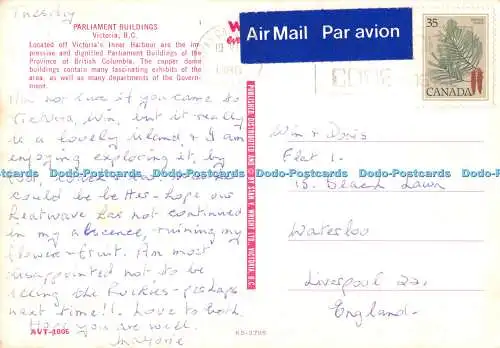 Tuesday
PARLIAMENT BUILDINGS
Victoria, B.C.
Located off Victoria's Inner Harbour are the im-
pressive and dignified Parliament Buildings of the
Province of British Columbia. The copper dome
buildings contain many fascinating exhibits of the
area, as well as many departments of the Govern-
ment.
I'm not sure if you came to
Victoria, Win, but it really
is a lovely island & I am
enjoying exploring it, by
could be better - hope our
heatwave has not continued
in my abscence, ruining my
flowers & fruit. Am most
disappointed not to be
seeing the Rockies - perhaps
next time!! Love to both.
Hope you are well.
Marjorie
AVT-1806
PUBLISHED, DISTRIBUTED AND STAN V. WRIGHT LTD., VICTORIA, B.C.
Air Mail Par avion
CODE
35
CANADA
Win & Doris
Flat 1.
15. Beach Lawn
Waterloo
Liverpool 22,
England.